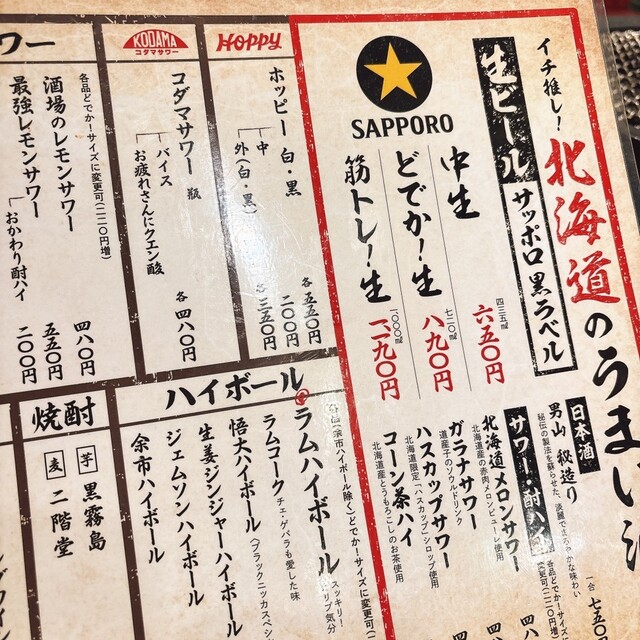 イチ推し!
北海道のうまい
生ビール
サッポロ黒ラベル
SAPPORO
中生
四三五㎖
六五〇円
どでか!生
七二〇㎖
八九〇円
筋トレ!生
一〇〇〇㎖
一、一九〇円
日本酒
男山
秘伝の製法を蘇らせた、淡麗でまろやかな味わい
一合
七五〇円
サワー・酎ハイ
各品どでか!サイズ
変更可(二二〇円増)
北海道メロンサワー
北海道産の赤肉メロンピューレ使用
ガラナサワー
道産子のソウルドリンク
ハスカップサワー
北海道限定「ハスカップ」シロップ使用
コーン茶ハイ
北海道産とうもろこしのお茶使用
HOPPY
ホッピー 白・黒
各 五五〇円
中
二〇〇円
外(白・黒)
各 三五〇円
KODAMA
コダマサワー
コダマサワー 瓶
バイス
お疲れさんにクエン酸
各 四八〇円
ワー
各品どでか!サイズに変更可(二二〇円増)
酒場のレモンサワー
四八〇
最強レモンサワー
五五〇円
おかわり酎ハイ
二〇〇円
ハイボール
(余市ハイボール除く)どでか!サイズに変更可
ラムハイボール
スッキリ!
気分
ラムコーク
チェ・ゲバラも愛した味
悟大ハイボール
(ブラックニッカスペシ
生姜ジンジャーハイボール
ジェムソンハイボール
余市ハイボール
焼酎
芋 黒霧島
麦 二階堂